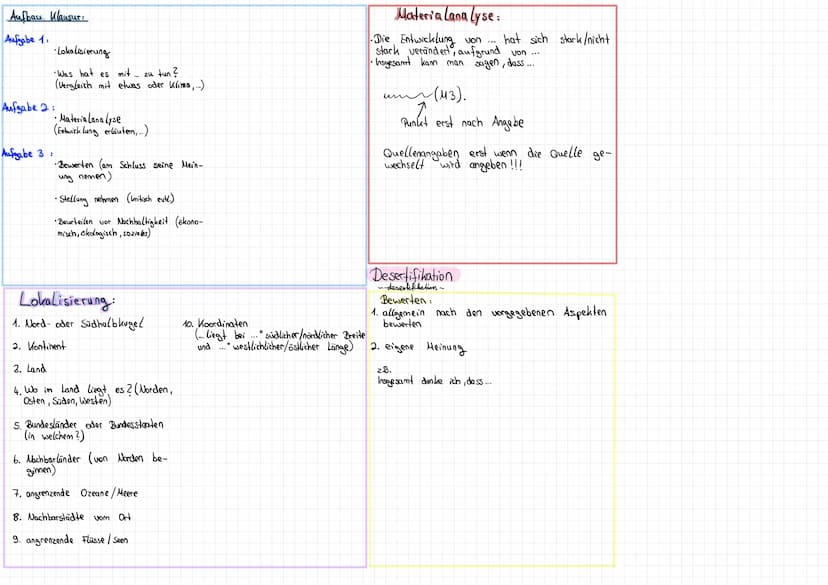 Aufbau Klausur:
Aufgabe 1:
· Lokalisierung
· Was hat es mit ... zu tun?
(Vergleich mit etwas oder Klima,...)
Aufgabe 2:
· Materialanalyse
(Entwicklung erläutern,...)
Aufgabe 3:
· Bewerten (am Schluss seine Mein-
ung nennen)
· Stellung nehmen (kritisch evtl)
· Beurteilen vor Nachhaltigkeit (ökono-
misch, ökologisch, soziales)
Materialanalyse:
· Die Entwicklung von ... hat sich stark/nicht
stark verändert, aufgrund von ...
· Insgesamt kann man sagen, dass...
(M3).
Punkt erst nach Angabe
Quellenangaben erst wenn die Quelle ge-
wechselt wird angeben!!!
Lokalisierung:
1. Nord- oder Südhalbkugel
2. Kontinent
2. Land
4. Wo im Land liegt es? (Norden,
Osten, Süden, Westen)
5. Bundesländer oder Bundesstaaten
(in welchem?)
6. Nachbarländer (von Norden be-
ginnen)
7. angrenzende Ozeane/Meere
8. Nachbarstädte vom Ort
9. angrenzende Flüsse/Seen
10. Koordinaten
(...liegt bei ...° südlicher/nördlicher Breite
und ...° westlichlicher/östlicher Länge)
Desertifikation
- desertifikation -
Bewerten:
1. allgemein nach den vorgegebenen Aspekten
bewerten
2. eigene Meinung
z.B.
Insgesamt denke ich, dass...